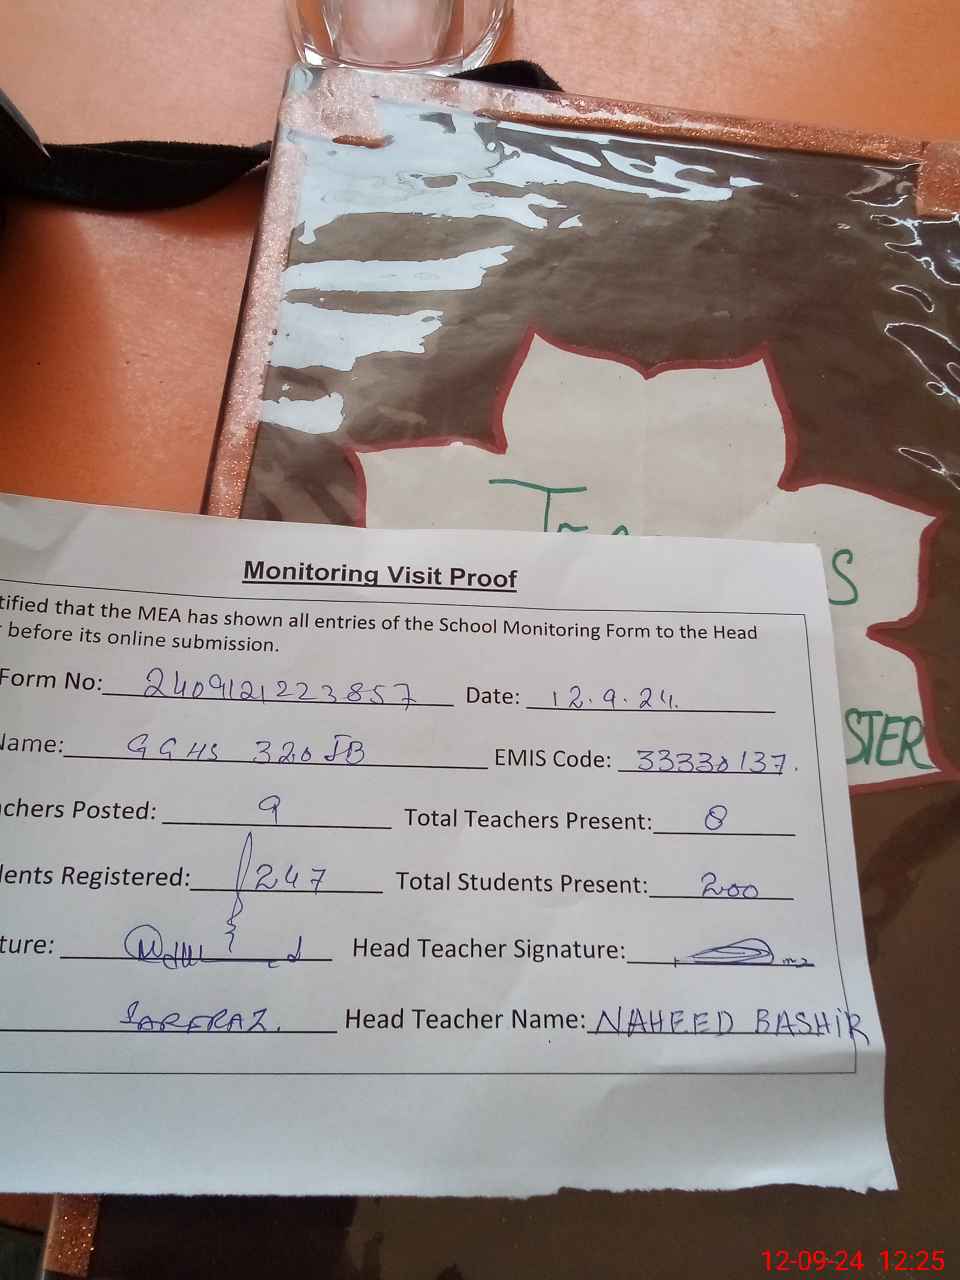 S
STER
Monitoring Visit Proof
tified that the MEA has shown all entries of the School Monitoring Form to the Head
r before its online submission.
Form No: 2409121223857 Date: 12.9.24.
Name: GGHS 320 JB EMIS Code: 33330137.
achers Posted: 9 Total Teachers Present: 8
dents Registered: 247 Total Students Present: 200
ture: Head Teacher Signature:
SARFRAZ. Head Teacher Name: NAHEED BASHIR
12-09-24 12:25